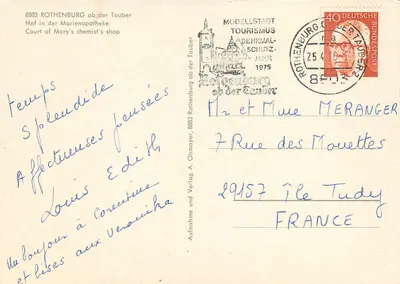 8803 ROTHENBURG ob der Tauber
Hof in der Marienapotheke
Court of Mary's chemist's shop
temps
splendide
Affectueuses pensées
Louis Edith
Un bonjour à Corentine
et bises aux Veronika
Aufnahme und Verlag A. Ohmayer, 8803 Rothenburg ob der Tauber
MODELLSTADT
TOURISMUS
DENKMAL-
SCHUTZ-
JAHR
1975
Rothenburg
ob der Tauber
ROTHENBURG OB DER TAUBER 2
25.
8803
40
DEUTSCHE
BUNDESPOST
Mr et Mme MERANGER
7 Rue des Mouettes
29157 île Tudy
FRANCE